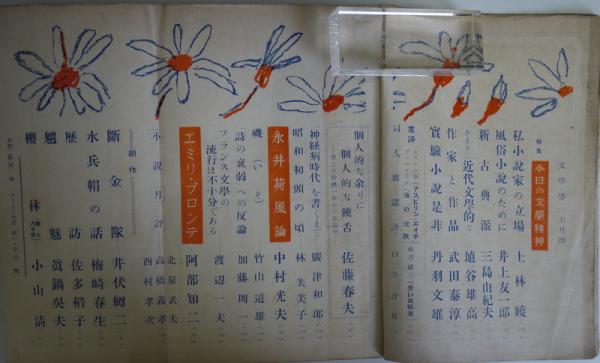 文學界 七月號
特集
今日の文學精神
私小説家の立場 上林暁
風俗小説のために 井上友一郎
新古典派 三島由紀夫
あまりに近代文學的な 埴谷雄高
作家と作品 武田泰淳
實驗小説是非 丹羽文雄
書評
同人雜誌評
個人的な余りに個人的な饒舌 佐藤春夫
神経病時代を書くまで 廣津和郎
昭和初頭の頃 林芙美子
永井荷風論 中村光夫
磯(いそ) 竹山道雄
詩の衰弱への反論 加藤周一
フランス文學の流行は不十分である 渡辺一夫
エミリ・ブロンテ 阿部知二
小説月評
北原武夫
高橋義孝
西村孝次
創作
斷金隊 井伏鱒二
水兵帽の話 梅崎春生
歴訪 佐多稲子
魑魅 眞鍋呉夫
櫻林 小山清